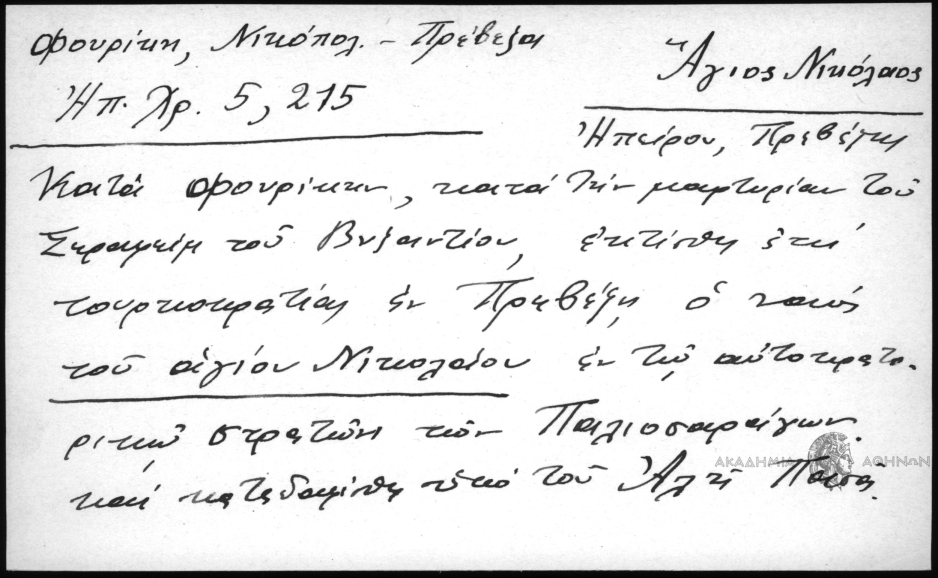 Φουρίκη, Νικόπολ. – Πρέβεζα
Ἠπ. Χρ. 5, 215
Ἅγιος Νικόλαος
Ἠπείρου, Πρεβέζης
Κατὰ Φουρίκην, κατὰ τὴν μαρτυρίαν τοῦ
Σεραφεὶμ τοῦ Βυζαντίου, ἐκτίσθη ἐπὶ
τουρκοκρατίας ἐν Πρεβέζῃ ὁ ναὸς
τοῦ ἁγίου Νικολάου ἐν τῷ αὐτοκρατο-
ρικῷ στρατῶνι τῶν Παλιοσαράγων.
καὶ κατεδαφίσθη ὑπὸ τοῦ Ἀλῆ Πασᾶ.
ΑΚΑΔΗΜΙΑ ΑΘΗΝΩΝ